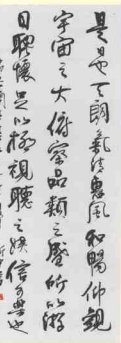 是日也天朗氣清惠風和暢仰觀
宇宙之大俯察品類之盛所以遊
目騁懷足以極視聽之娛信可樂也